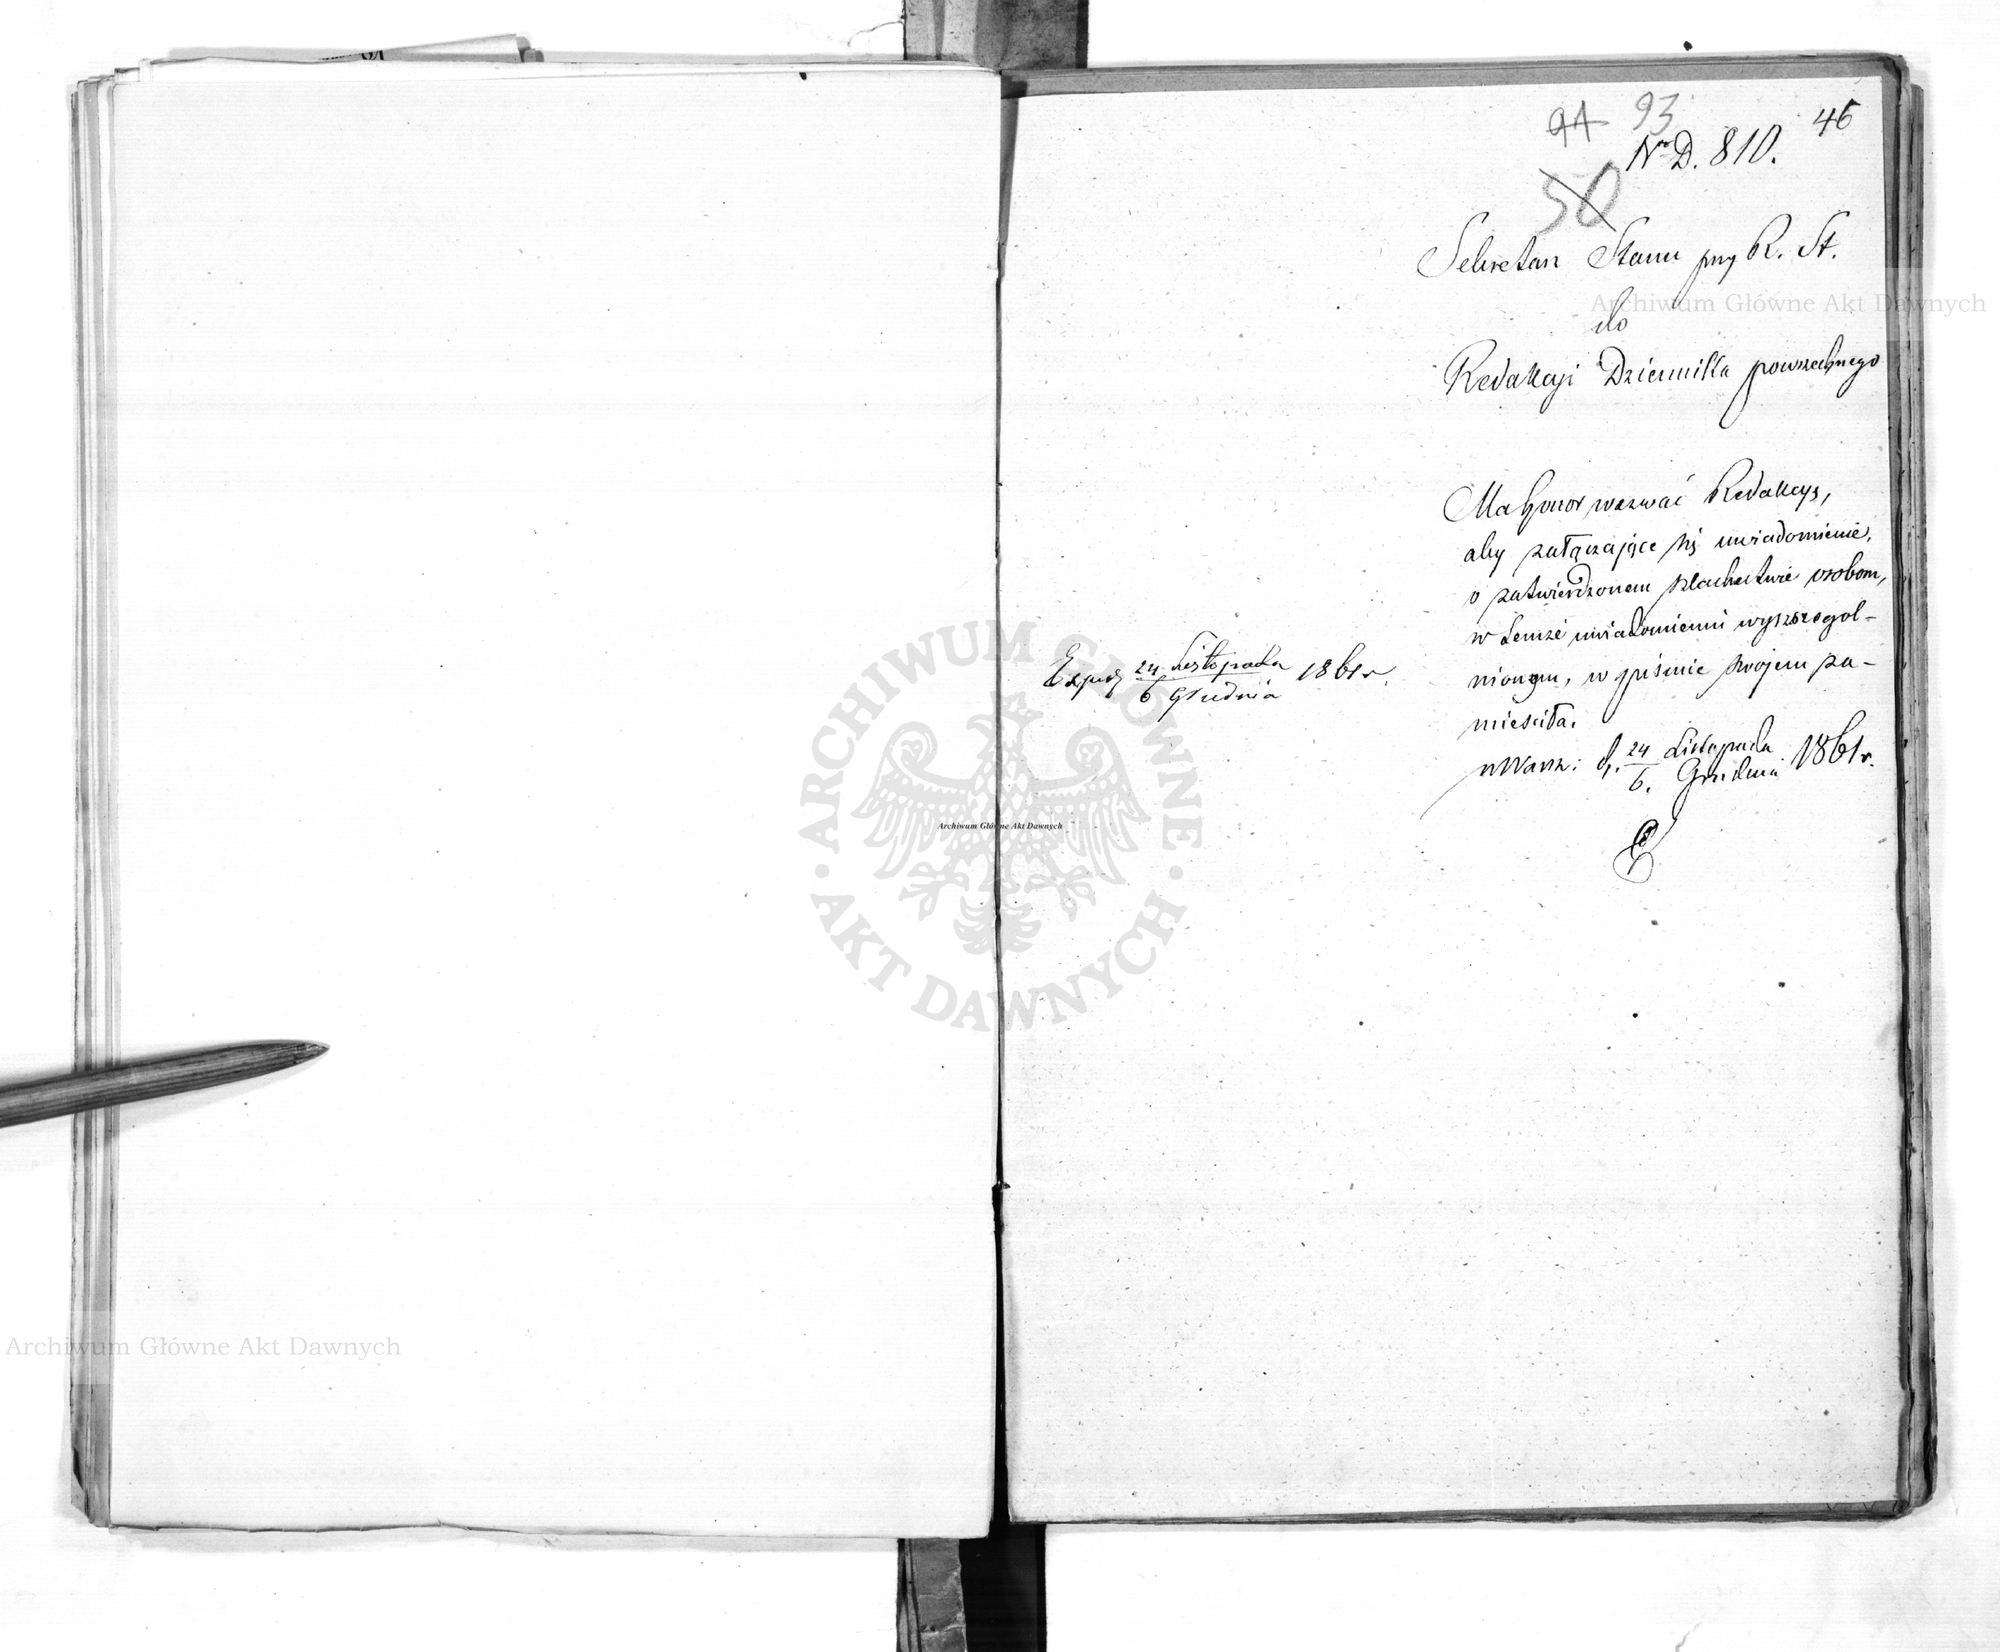 91 93 46
No D. 810.
50
Sekretarz Stanu przy R. St.
do
Redakcji Dziennika powszechnego
Ma honor wezwać Redakcyą,
aby załączające się uwiadomienie,
o zatwierdzonem szlachectwie osobom,
w temże uwiadomieniu wyszczegól-
nionym, w piśmie swojem za-
mieściła.
w Warsz: d. 24 Listopada 1861 r.
6. Grudnia
Exped 24 Listopada 1861 r.
6 Grudnia
Archiwum Główne Akt Dawnych
ARCHIWUM GŁÓWNE
AKT DAWNYCH
Archiwum Główne Akt Dawnych
Archiwum Główne Akt Dawnych